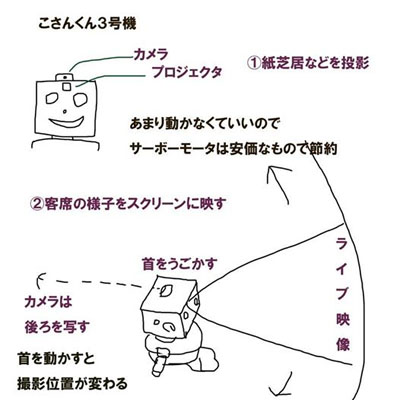 こさんくん3号機
カメラ
プロジェクタ
①紙芝居などを投影
あまり動かなくていいので
サーボーモータは安価なもので節約
②客席の様子をスクリーンに映す
首をうごかす
ライブ映像
カメラは
後ろを写す
首を動かすと
撮影位置が変わる